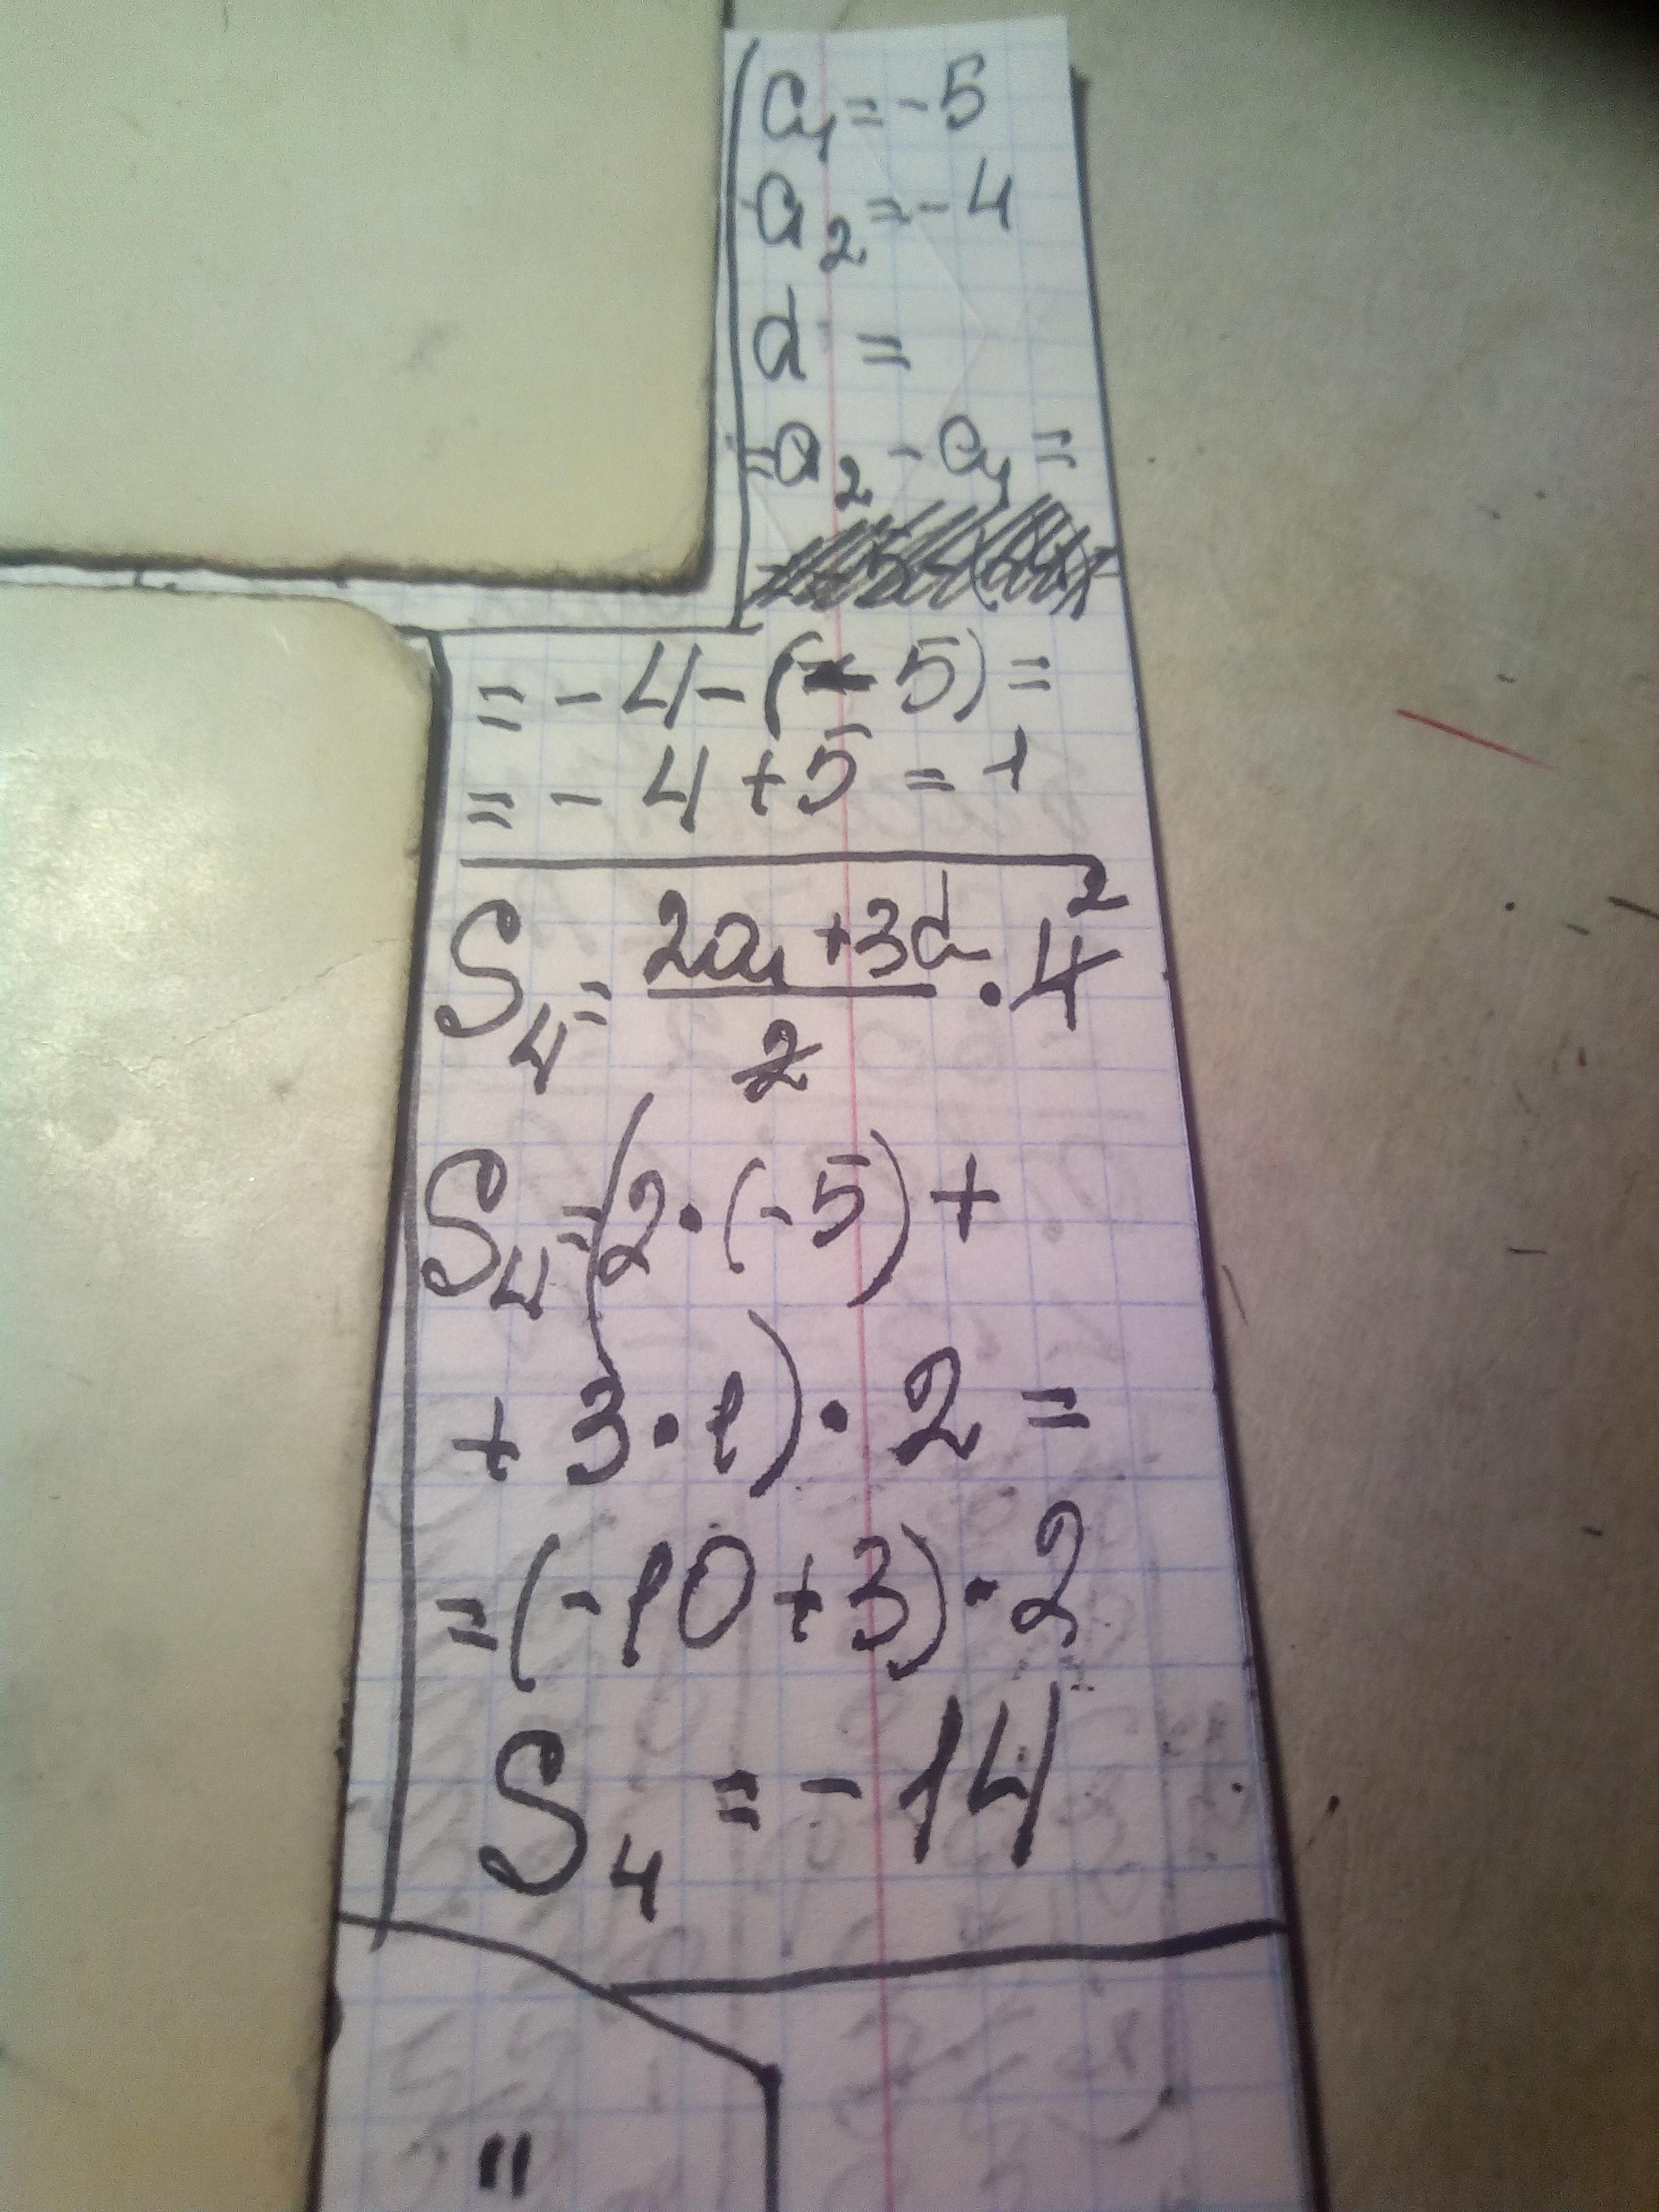 a₁ = -5
a₂ = -4
d =
= a₂ - a₁ =
= -4 - (-5) =
= -4 + 5 = 1
S₄ = (2a₁ + 3d)/2 · 4²
S₄ = (2 · (-5) +
+ 3 · 1) · 2 =
= (-10 + 3) · 2
S₄ = -14
"